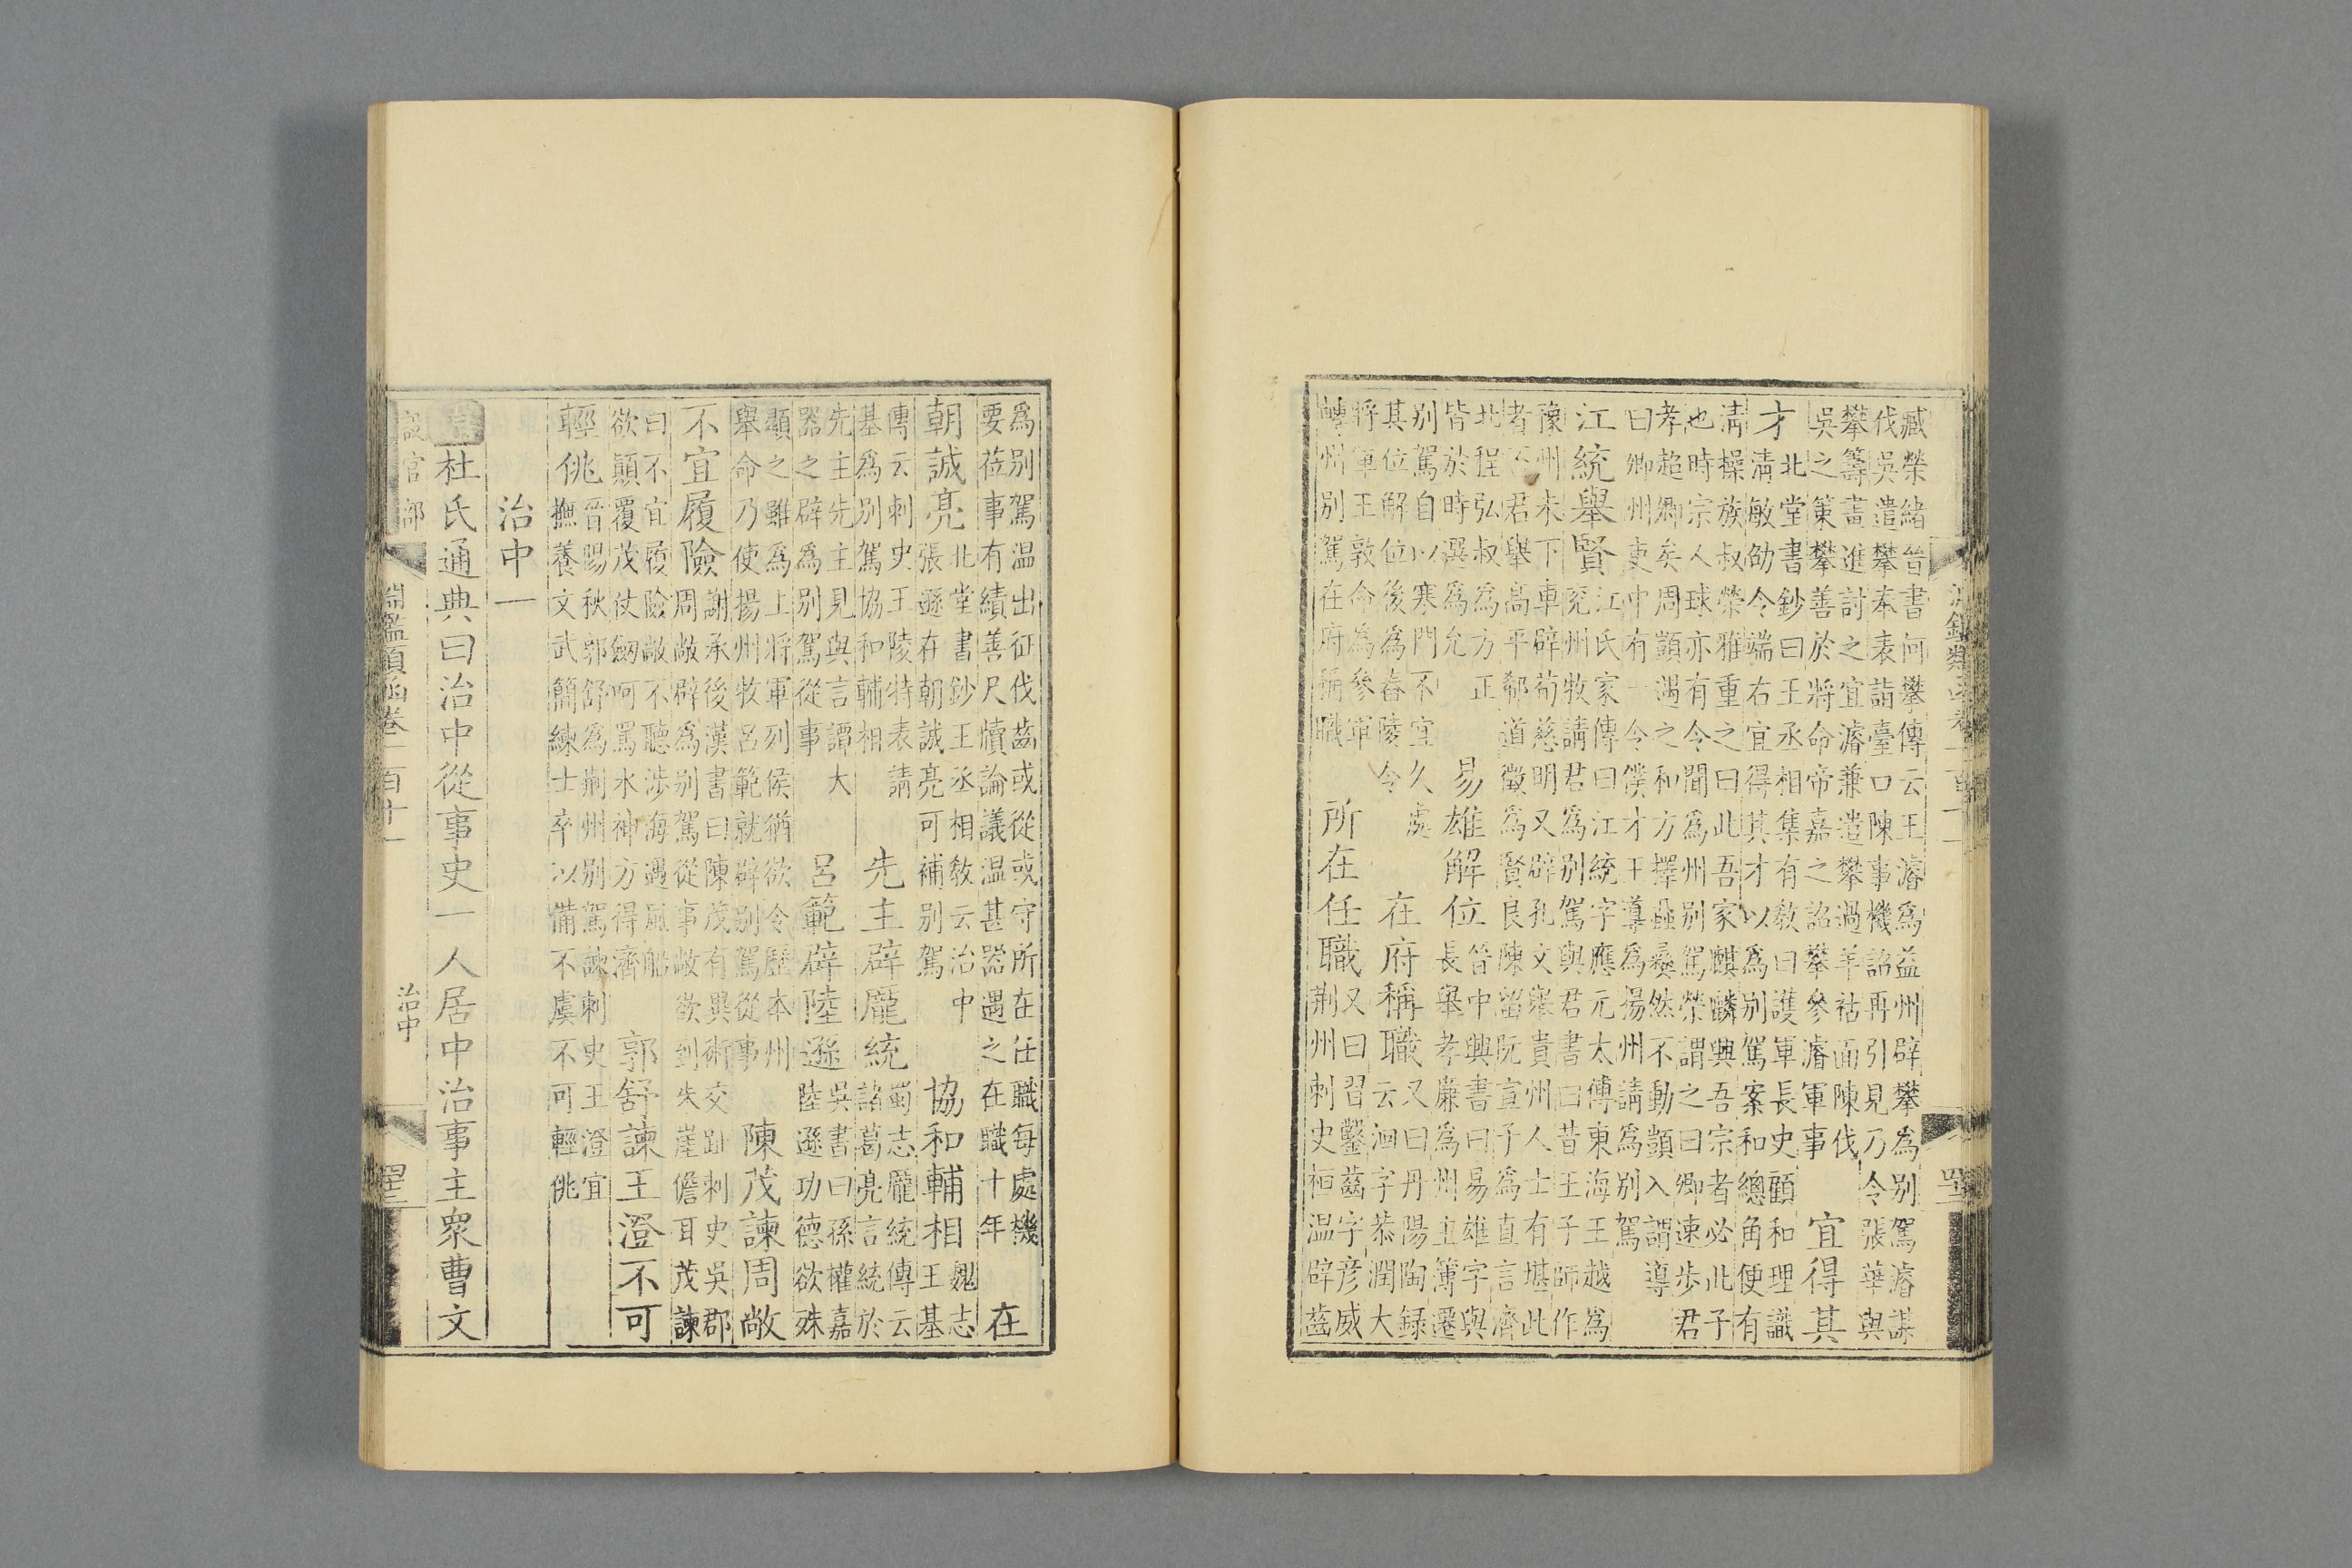 臧榮緒晉書何攀傳云王濬為益州辟攀為別駕濬謀
伐吳遣攀奉表詣臺口陳事機詔再引見乃令張華與
攀籌畫進討之宜濬兼遣攀過羊祜面陳伐
吳之策攀善於將命帝嘉之詔攀參濬軍事
宜得其
才
北堂書鈔曰王丞相集有敎曰護軍長史顧和理識
清敏劭令端右宜得其才以為別駕案和總角便有
清操族叔榮雅重之曰此吾家麒麟興吾宗者必此子
也時宗人球亦有令聞為州別駕榮謂之曰卿速步君
孝超卿矣周顗遇之和方擇蝨夷然不動顗入謂導
曰卿州吏中有一令僕才王導為揚州請為別駕
江統舉賢
江氏家傳曰江統字應元太傅東海王越為
兖州牧請君為別駕與君書曰昔王子師作
豫州未下車辟荀慈明又辟孔文舉貴州人士有堪此
者不君舉高平郗道徽為賢良陳留阮宣子為直言濟
北程弘叔為方正
皆於時選為允
易雄解位
晉中興書曰易雄字興
長舉孝廉為州主簿遷
別駕自以寒門不宜久處
其位解位後為舂陵令
在府稱職
又曰丹陽陶録
云洄字恭潤大
將軍王敦命為參軍
轉州別駕在府稱職
所在任職
又曰習鑿齒字彦威
荆州刺史桓温辟齒
為別駕温出征伐齒或從或守所在任職每處機
要莅事有績善尺牘論議温甚器遇之在職十年
在
朝誠亮
北堂書鈔王丞相敎云治中
張遜在朝誠亮可補別駕
協和輔相
魏志
王基
傳云刺史王陵特表請
基為別駕協和輔相
先主辟龐統
蜀志龐統傳云
諸葛亮言統於
先主先主見與言譚大
器之辟為別駕從事
呂範辟陸遜
吳書曰孫權嘉
陸遜功德欲殊
顯之雖為上將軍列侯猶欲令歷本州
舉命乃使揚州牧呂範就辟別駕從事
陳茂諫周敞
不宜履險
謝承後漢書曰陳茂有異術交趾刺史吳郡
周敞辟為別駕從事敞欲到失崖儋耳茂諫
曰不宜履險敞不聽涉海遇風船
欲顛覆茂仗劒呵罵水神方得濟
郭舒諫王澄不可
輕佻
晉陽秋郭舒為荆州別駕諫刺史王澄宜
撫養文武簡練士卒以備不虞不可輕佻
治中一
杜氏通典曰治中從事史一人居中治事主衆曹文
設官部
淵鑑類函卷一百十一
治中